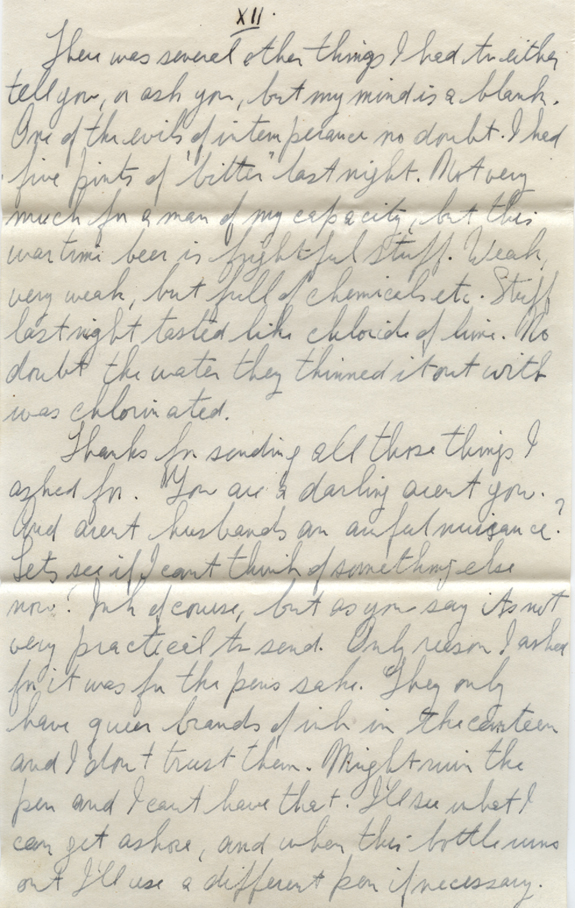 XII.
There was several other things I had to either
tell you, or ask you, but my mind is a blank.
One of the evils of intemperance no doubt. I had
five pints of "bitter" last night. Not very
much for a man of my capacity, but this
war time beer is frightful stuff. Weak,
very weak, but full of chemicals etc. Stuff
last night tasted like chloride of lime. No
doubt the water they thinned it out with
was chlorinated.
Thanks for sending all those things I
asked for. You are a darling arent you.
And arent husbands an awful nuisance?
Lets see if I cant think of something else
now? Ink of course, but as you say its not
very practical to send. Only reason I asked
for it was for the pens sake. They only
have queer brands of ink in the canteen
and I don't trust them. Might ruin the
pen and I cant have that. I'll see what I
can get ashore, and when this bottle runs
out I'll use a different pen if necessary.